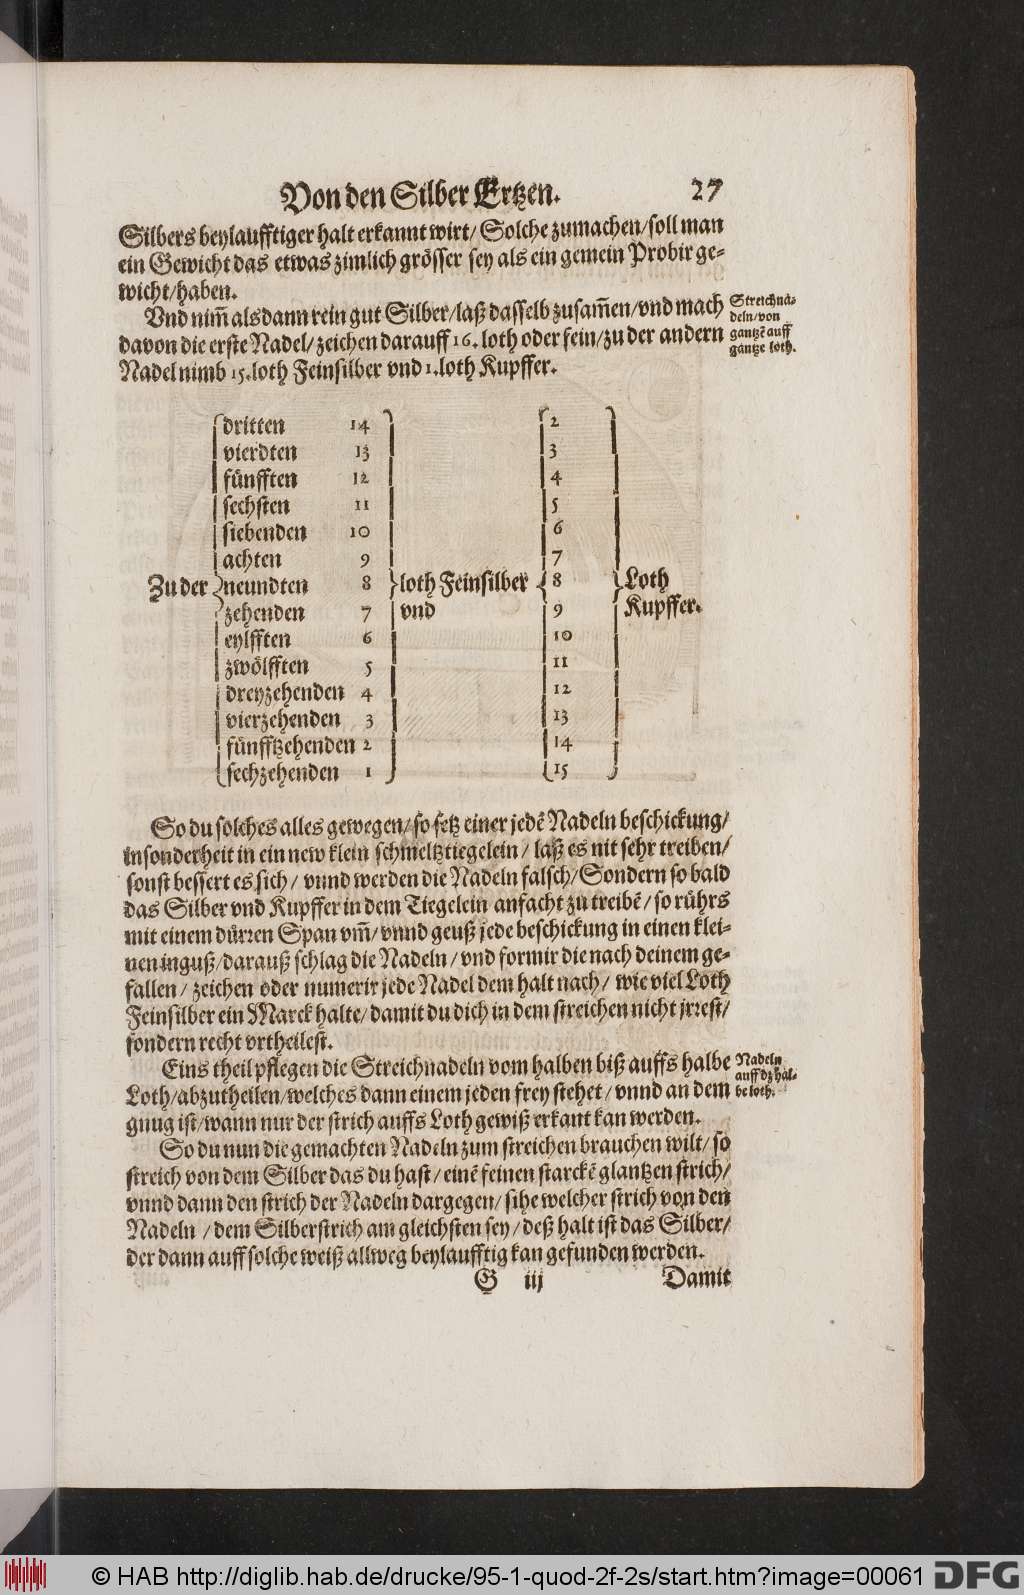 Von den Silber Ertzen. 27
Silbers beylaufftiger halt erkannt wirt/ Solche zumachen/ soll man
ein Gewicht das etwas zimlich grösser sey als ein gemein Probir ge-
wicht/ haben.
Vnd nim̃ alsdann rein gut Silber/ laß dasselb zusam̃en/ vnd mach
davon die erste Nadel/ zeichen darauff 16. loth oder fein/ zu der andern
Nadel nimb 15. loth Feinsilber vnd 1. loth Kupffer.
Streichna-
deln/ von
gantzẽ auff
gantze loth.
dritten 14 2
vierdten 13 3
fünfften 12 4
sechsten 11 5
siebenden 10 6
achten 9 7
Zu der neundten 8 loth Feinsilber 8 Loth
zehenden 7 vnd 9 Kupffer.
eylfften 6 10
zwölfften 5 11
dreyzehenden 4 12
vierzehenden 3 13
fünfftzehenden 2 14
sechzehenden 1 15
So du solches alles gewegen/ so setz einer jedẽ Nadeln beschickung/
insonderheit in ein new klein schmeltztiegelein/ laß es nit sehr treiben/
sonst bessert es sich/ vnnd werden die Nadeln falsch/ Sondern so bald
das Silber vnd Kupffer in dem Tiegelein anfacht zu treibẽ/ so rührs
mit einem dürren Span vm̃/ vnnd geuß jede beschickung in einen klei-
nen inguß/ darauß schlag die Nadeln/ vnd formir die nach deinem ge-
fallen/ zeichen oder numerir jede Nadel dem halt nach/ wie viel Loth
Feinsilber ein Marck halte/ damit du dich in dem streichen nicht jrrest/
sondern recht vrtheilest.
Eins theil pflegen die Streichnadeln vom halben biß auffs halbe
Loth/ abzutheilen/ welches dann einem jeden frey stehet/ vnnd an dem
gnug ist/ wann nur der strich auffs Loth gewiß erkant kan werden.
Nadeln
auff dz hal-
be loth.
So du nun die gemachten Nadeln zum streichen brauchen wilt/ so
streich von dem Silber das du hast/ einẽ feinen starckẽ glantzen strich/
vnnd dann den strich der Nadeln dargegen/ sihe welcher strich von den
Nadeln/ dem Silberstrich am gleichsten sey/ deß halt ist das Silber/
der dann auff solche weiß allweg beylaufftig kan gefunden werden.
G iij Damit
© HAB http://diglib.hab.de/drucke/95-1-quod-2f-2s/start.htm?image=00061 DFG